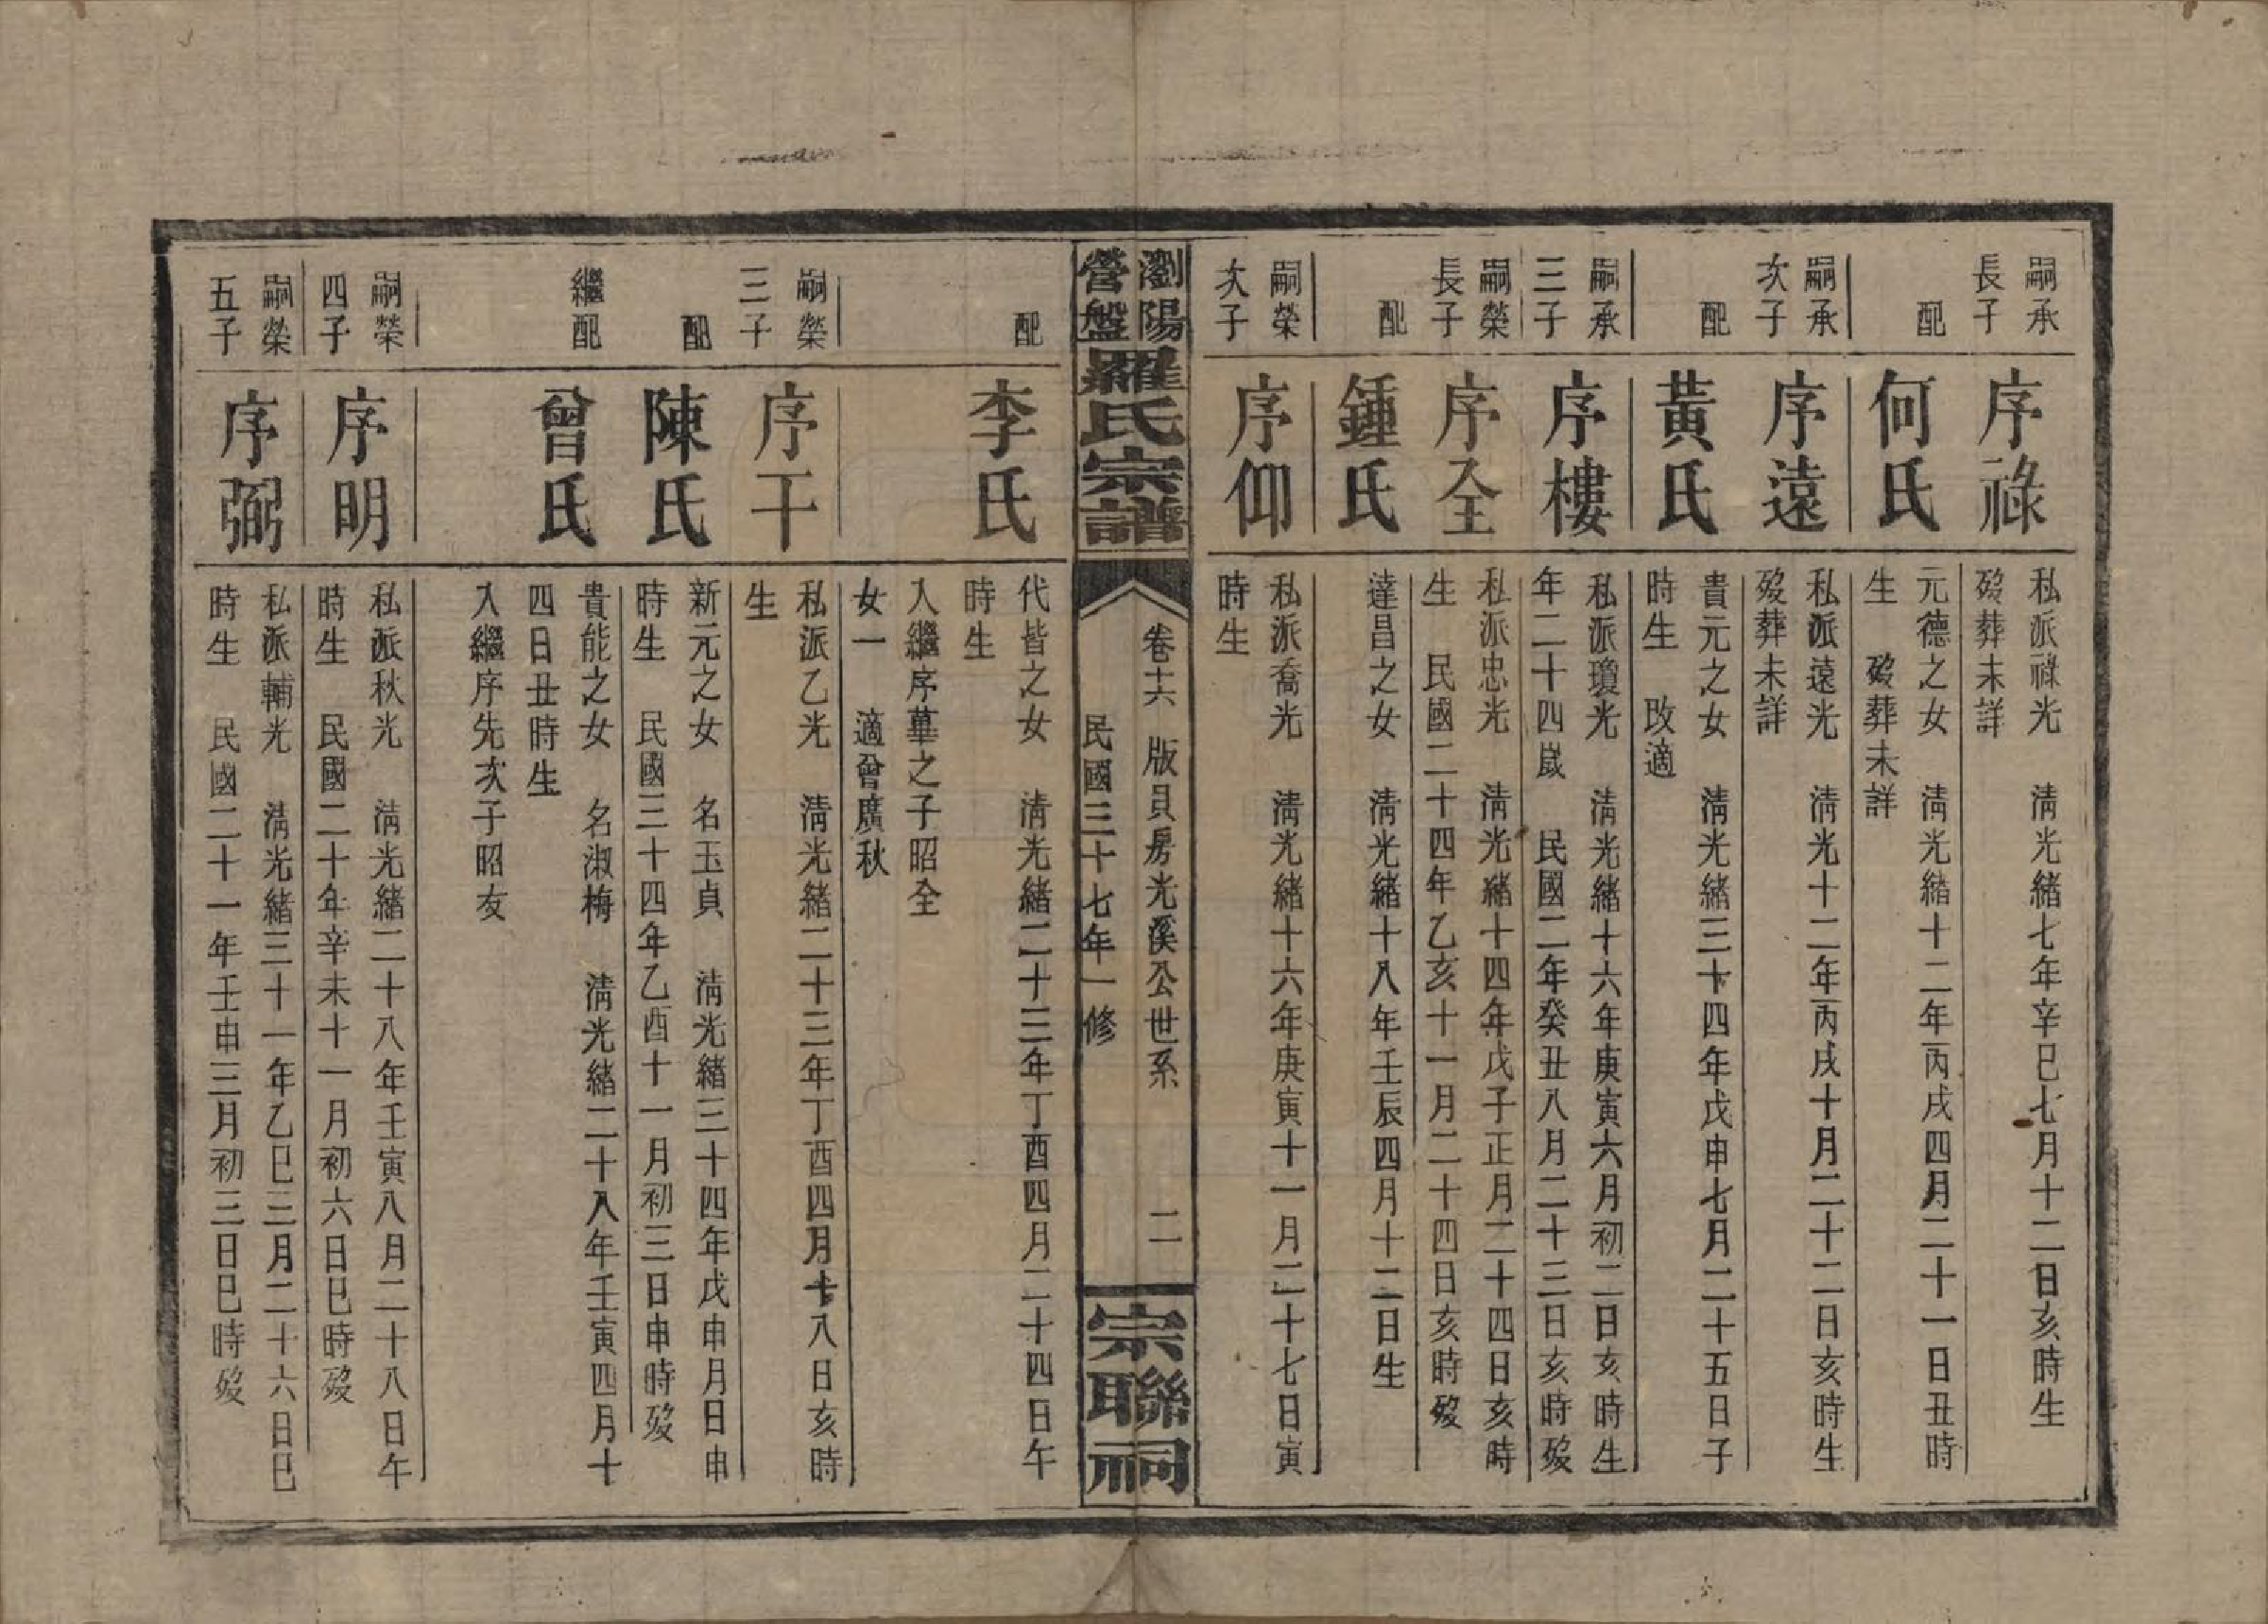 嗣承長子
序祿
私派祿光　淸光緖七年辛巳七月十二日亥時生
歿葬未詳
配
何氏
元德之女　淸光緖十二年丙戌四月二十一日丑時
生　歿葬未詳
嗣承次子
序遠
私派遠光　淸光十二年丙戌十月二十二日亥時生
歿葬未詳
配
黃氏
貴元之女　淸光緖三十四年戊申七月二十五日子
時生　改適
嗣承三子
序樓
私派瓊光　淸光緖十六年庚寅六月初二日亥時生
年二十四歲　民國二年癸丑八月二十三日亥時歿
嗣榮長子
序全
私派忠光　淸光緖十四年戊子正月二十四日亥時
生　民國二十四年乙亥十一月二十四日亥時歿
配
鍾氏
達昌之女　淸光緖十八年壬辰四月十二日生
嗣榮次子
序仰
私派喬光　淸光緖十六年庚寅十一月二十七日寅
時生
瀏陽營盤羅氏宗譜
卷十六　版員房光溪公世系　二
民國三十七年一修
宗聯祠
配
李氏
代皆之女　淸光緖二十三年丁酉四月二十四日午
時生
入繼序華之子昭全
女一　適曾廣秋
嗣榮三子
序干
私派乙光　淸光緖二十三年丁酉四月十八日亥時
生
配
陳氏
新元之女　名玉貞　淸光緖三十四年戊申月日申
時生　民國三十四年乙酉十一月初三日申時歿
繼配
曾氏
貴能之女　名淑梅　淸光緖二十八年壬寅四月十
四日丑時生
入繼序先次子昭友
嗣榮四子
序明
私派秋光　淸光緖二十八年壬寅八月二十八日午
時生　民國二十年辛未十一月初六日巳時歿
嗣榮五子
序弼
私派輔光　淸光緖三十一年乙巳三月二十六日巳
時生　民國二十一年壬申三月初三日巳時歿